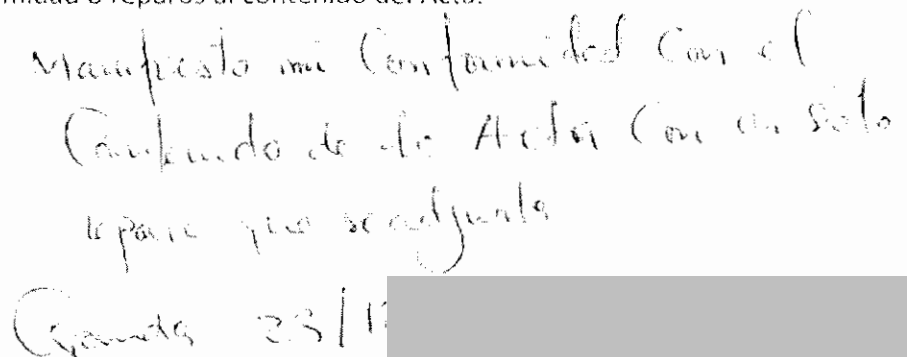 o reparos al contenido del Acta.
Manifiesto mi Conformidad Con el
Contenido de la Acta Con un solo
reparo que se adjunta
Granada 23/1